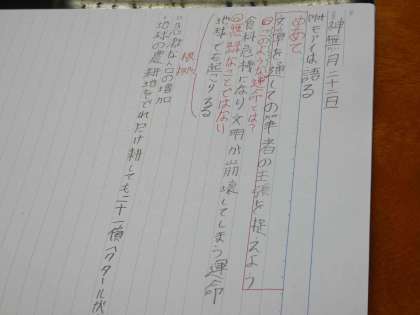 神無月二十二日
モアイは語る
めあて
文章を通しての筆者の主張を捉えよう
このような運命とは?
食料危機になり文明が崩壊してしまう運命
無縁なことではない
地球でも起こりうる
根拠
人口の増加
地球の農耕地はどれだけ耕しても二十一億ヘクタールが